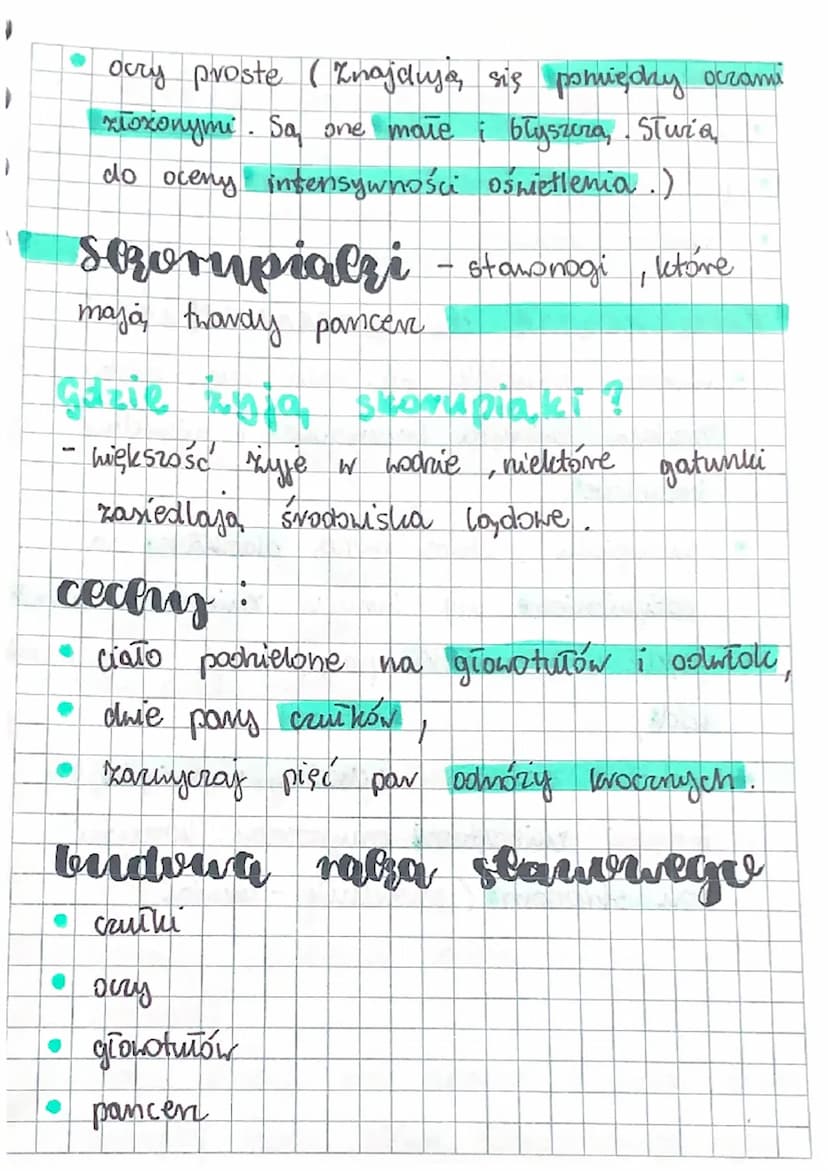 • oczy proste (Znajdują się pomiędzy oczami
złożonymi. Są one małe i błyszczą. Służą
do oceny intensywności oświetlenia.)
skorupiaki - stawonogi, które
mają twardy pancerz
Gdzie żyją skorupiaki?
- większość żyje w wodzie, niektóre gatunki
zasiedlają środowiska lądowe.
cechy:
• ciało podzielone na głowotułów i odwłok,
• dwie pary czułków,
• zazwyczaj pięć par odnóży krocznych.
budowa raka stawowego
• czułki
• oczy
• głowotułów
• pancerz